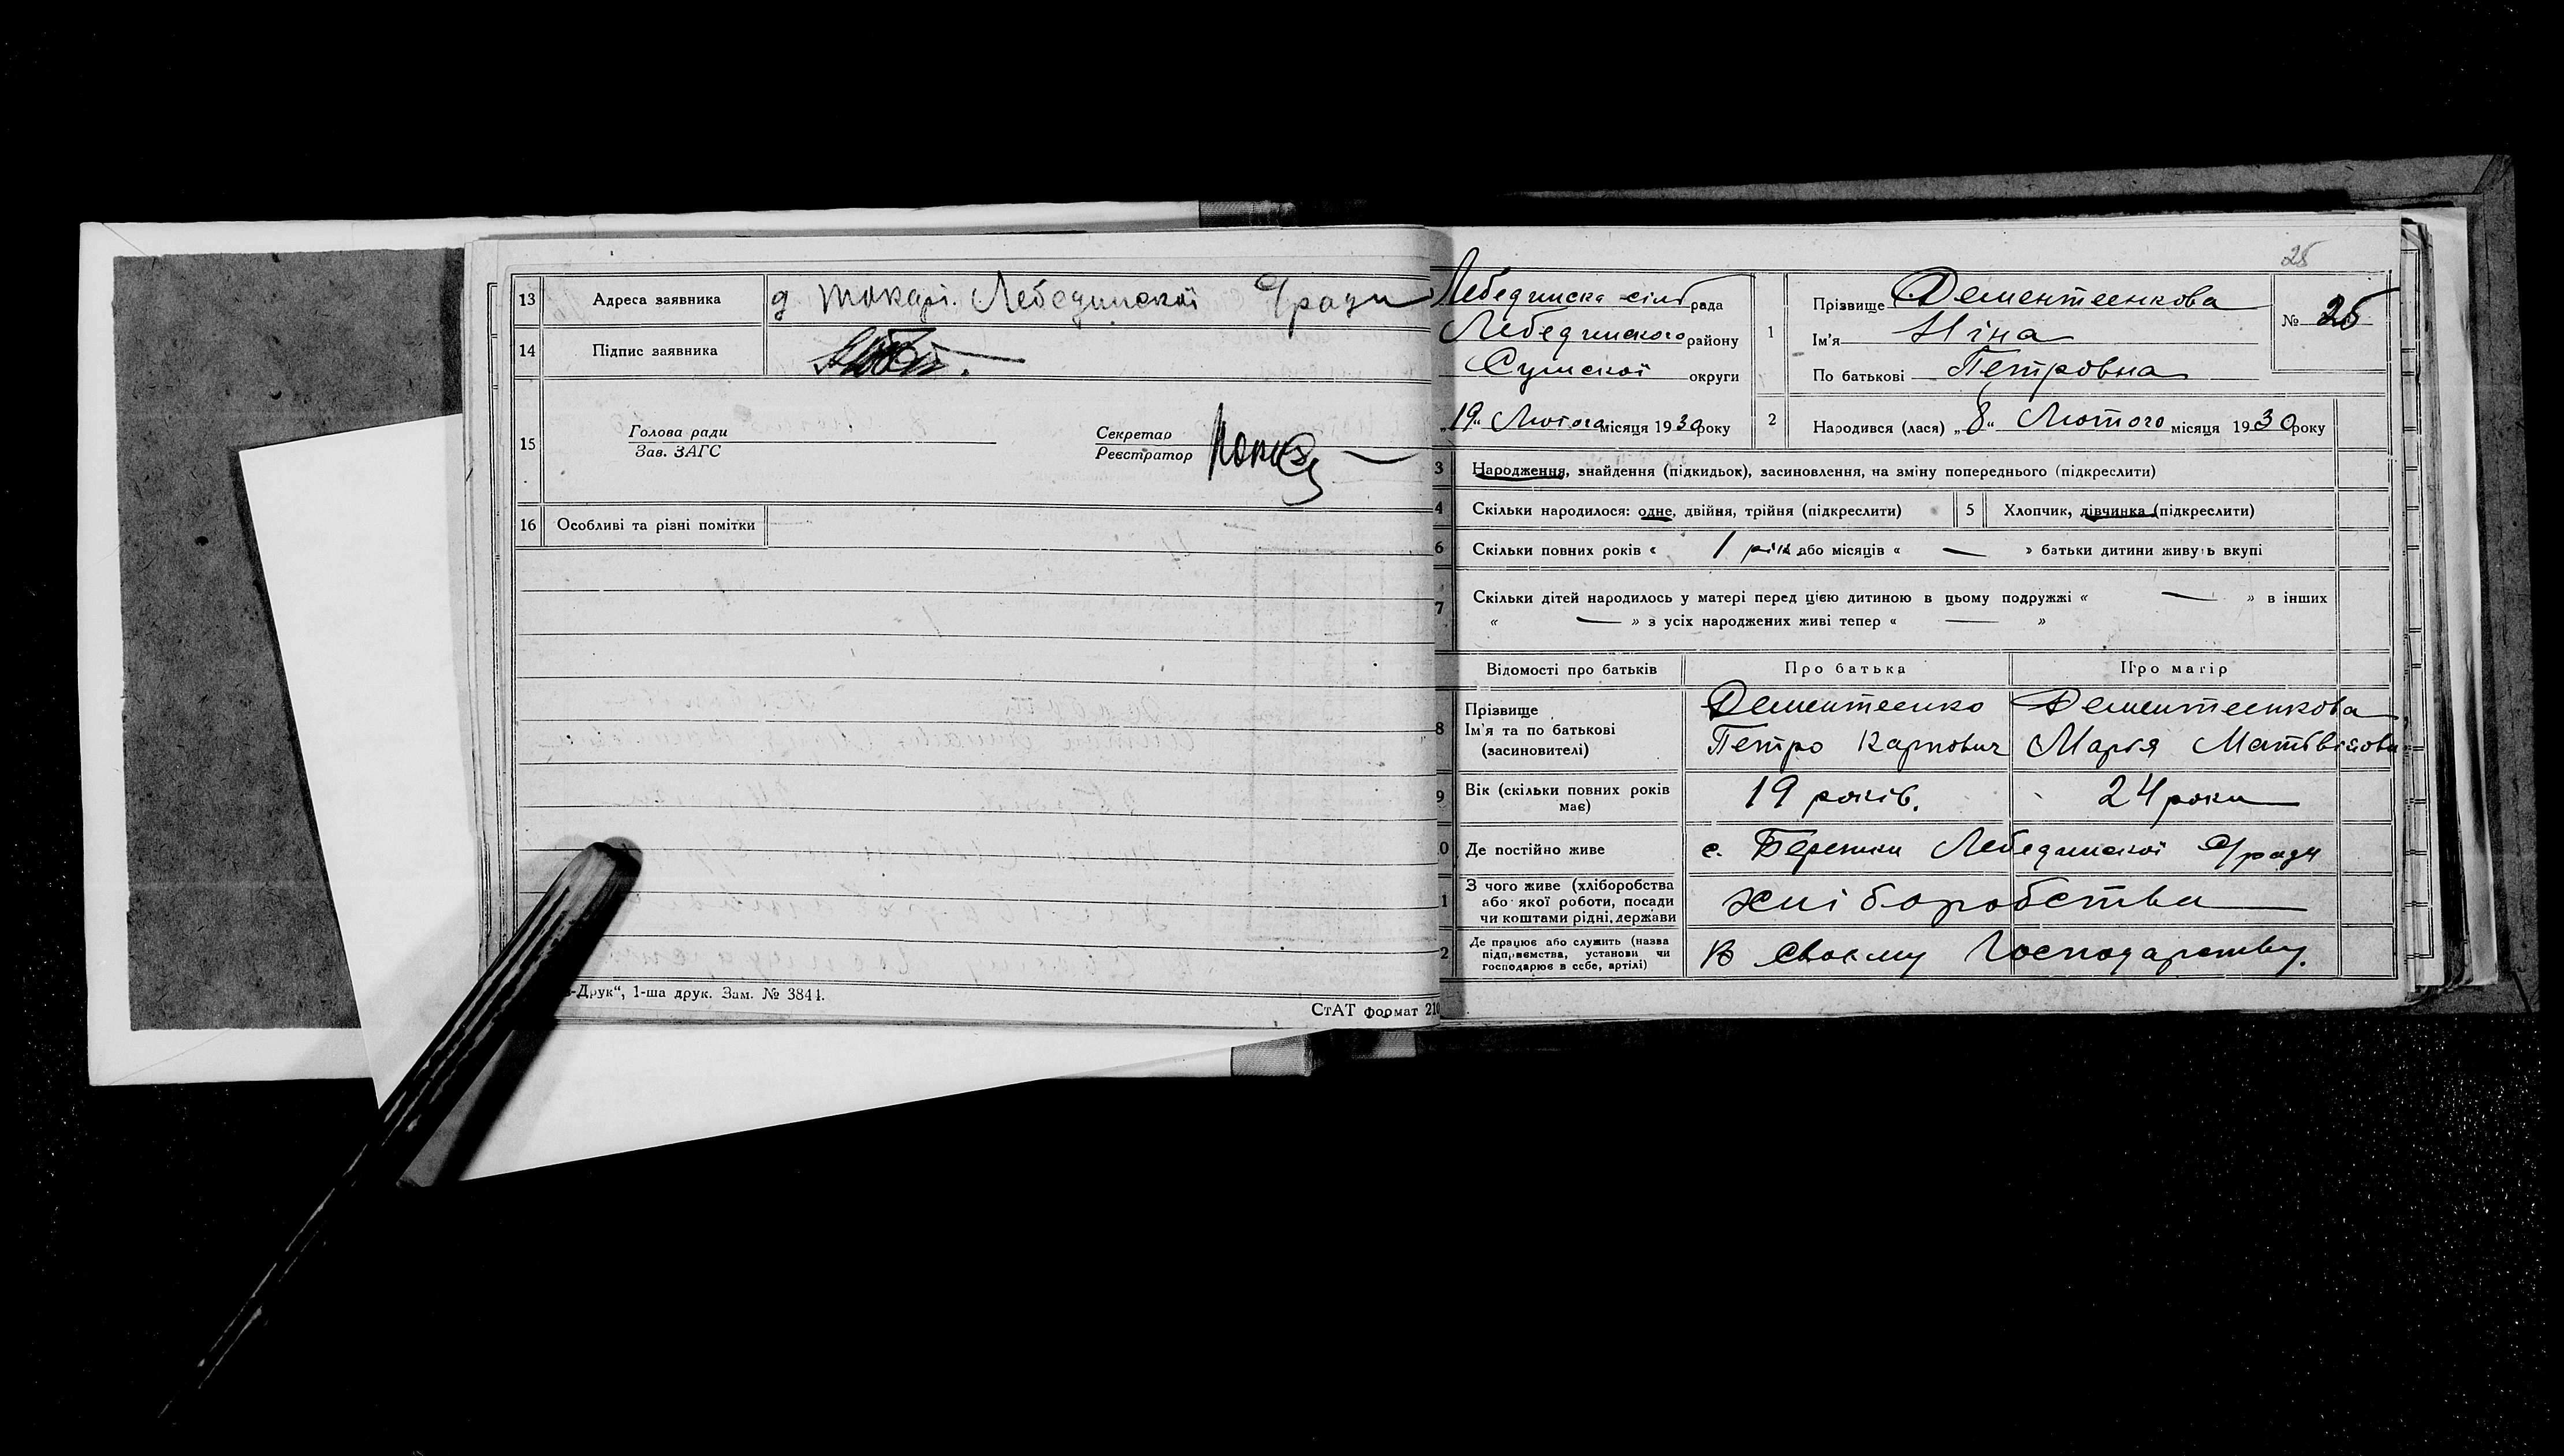 13 Адреса заявника д Токарі. Лебединської С/ради
14 Підпис заявника
15 Голова ради
Зав. ЗАГС
Секретар
Реєстратор
16 Особливі та різні помітки —
-Друк", 1-ша друк. Зам. № 3844.
СтАТ формат 210
25
Лебединска сільрада
Лебединського району
Сумської округи
„19“ Лютого місяця 1930 року
1 Прізвище Дементеєнкова
Ім'я Ніна
По батькові Петровна
№ 25
2 Народився (лася) „8“ Лютого місяця 1930 року
3 Народження, знайдення (підкидьок), засиновлення, на зміну попереднього (підкреслити)
4 Скільки народилося: одне, двійня, трійня (підкреслити) 5 Хлопчик, дівчинка (підкреслити)
6 Скільки повних років « 1 рік або місяців « — » батьки дитини живуть вкупі
7 Скільки дітей народилось у матері перед цією дитиною в цьому подружжі « — » в інших
« — » з усіх народжених живі тепер « — »
Відомості про батьків Про батька Про матір
8 Прізвище Дементеенко Дементеенкова
Ім'я та по батькові Петро Карпович Марія Матвієвна
(засиновителі)
9 Вік (скільки повних років має) 19 років. 24 роки
0 Де постійно живе с. Бережки Лебединської С/ради
1 З чого живе (хліборобства
або якої роботи, посади
чи коштами рідні, держави хліборобства
2 Де працює або служить (назва
підприємства, установи чи
господарює в себе, артілі) В своєму господарству.